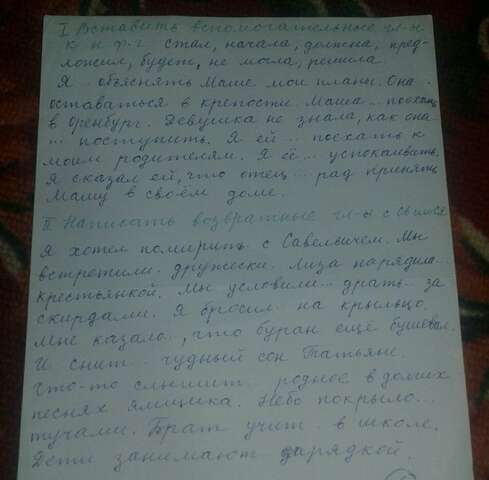 I Вставить вспомогательные гл-ы
к н. ф. г. стал, начала, должна, пред-
ложил, будет, не могла, решила.
Я .. объяснять Маше мои планы. Она ..
оставаться в крепости. Маша ... поехать
в Оренбург. Девушка не знала, как она
... поступить. Я ей ... поехать к
моим родителям. Я её ... успокаивать.
Я сказал ей, что отец ... рад принять
Машу в своём доме.
II Написать возвратные гл-ы с сь и ся
Я хотел помирить.. с Савельичем. Мы
встретили.. дружески. Лиза нарядила...
крестьянкой. Мы условили.. драть.. за
скирдами. Я бросил.. на крыльцо.
Мне казало.., что буран ещё бушевал.
И снит... чудный сон Татьяне.
Что-то слышит... родное в долгих
песнях ямщика. Небо покрыло...
тучами. Брат учит.. в школе.
Дети занимают.. зарядкой.